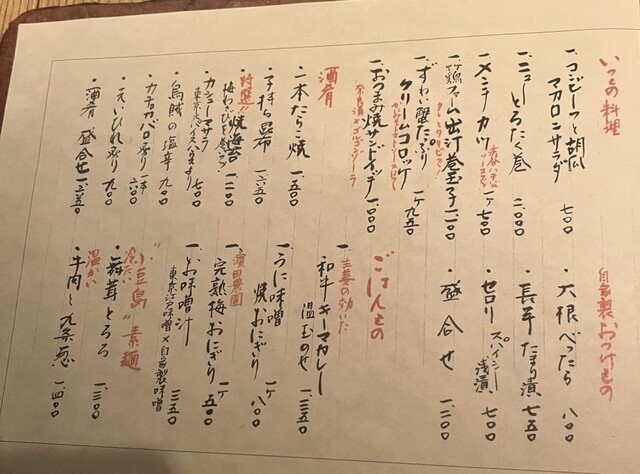 いつもの料理
一、コンビーフと胡瓜
マカロニサラダ 七〇〇
一、ニューとろたく巻 二.〇〇〇
一、メンチカツ 一ヶ 七〇〇
一、竹鶏ファーム出汁巻玉子 一.一〇〇
一、ずわい蟹たっぷり
クリームコロッケ 一ヶ 九五〇
一、おつまみ焼サンドイッチ 一.〇〇〇
奈良漬とゴルゴンゾーラ
酒肴
・一本たらこ焼 一.五〇〇
・子持ち昆布 一.六五〇
・特選!!焼海苔 一.二〇〇
・カシューマサラ 七〇〇
・烏賊の塩辛 九〇〇
・カチョカバロ炙り 一本 六〇〇
・えいひれ炙り 九〇〇
・酒肴 盛合せ 一.三五〇
自家製おつけもの
・大根べったら 八〇〇
・長芋たまり漬 七五〇
・セロリ スパイシー浅漬 七〇〇
・盛合せ 一.二〇〇
ごはんもの
一、生姜の効いた
和牛キーマカレー
温玉のせ 一.三五〇
一、うに味噌
焼おにぎり 一ヶ 八〇〇
一、濱田農園
完熟梅おにぎり 一ヶ 五〇〇
一、お味噌汁 三五〇
東京江戸味噌×自家製味噌
"小豆島"素麺
冷たい
・舞茸とろろ 一.三〇〇
温かい
・牛肉と九条葱 一.四〇〇